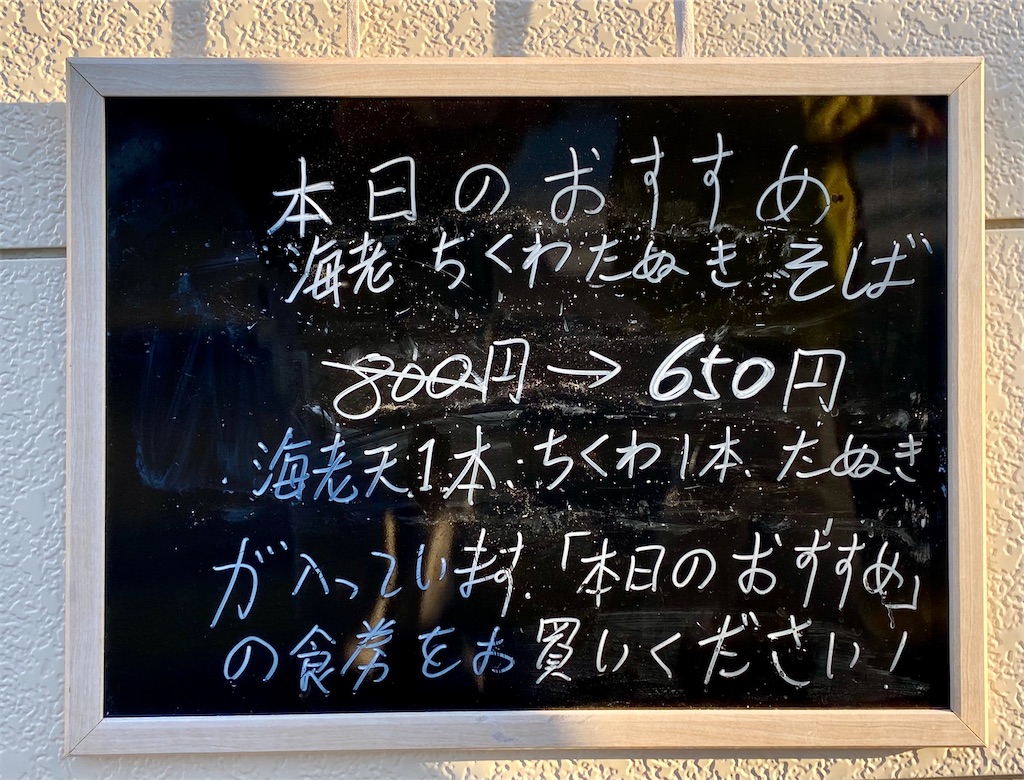 本日のおすすめ
海老ちくわたぬきそば
800円→650円
海老天1本.ちくわ1本.たぬき
が入っています.「本日のおすすめ」
の食券をお買いください!